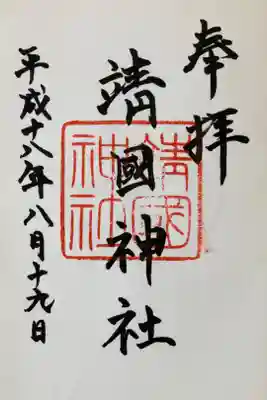 奉拝
靖國神社
靖國神社
平成十八年八月十九日